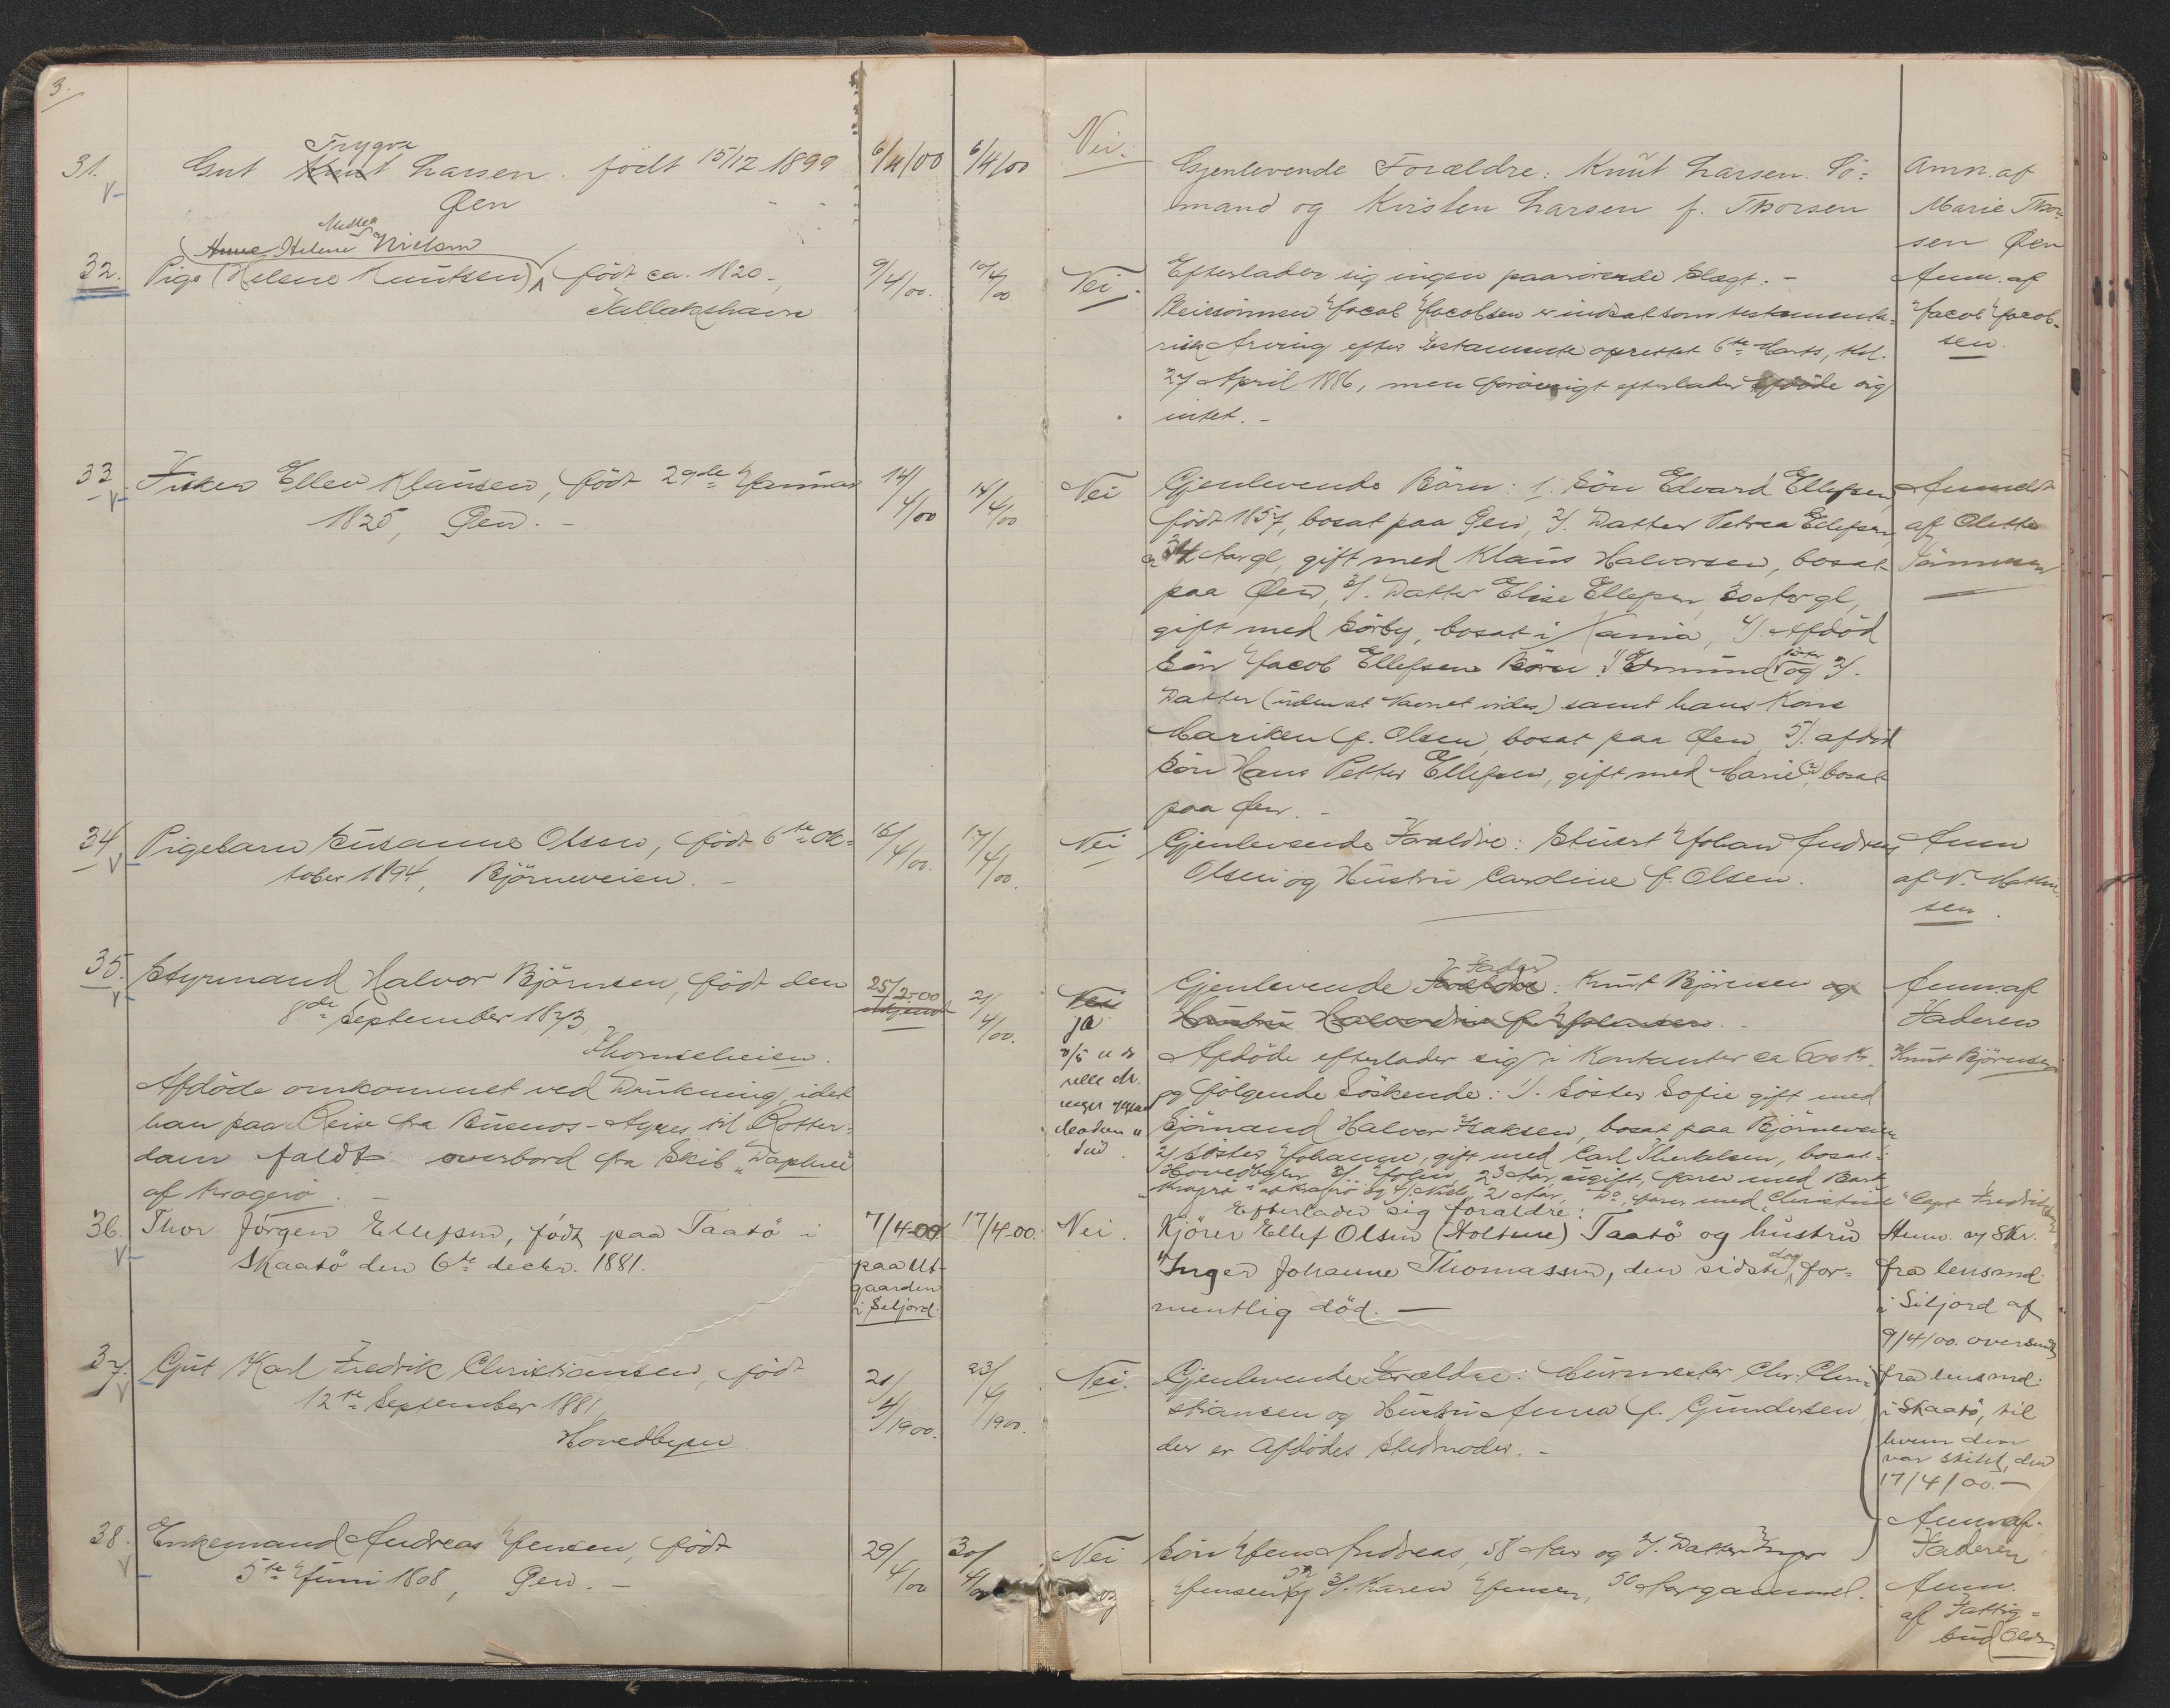 3.
31.
Gut Trygve Larsen. født 15/12 1899
Øen
6/4/00
6/4/00
Nei.
Gjenlevende Forældre: Knut Larsen. Sö-
mand og Kirsten Larsen f. Thorsen
Anm. af
Marie Thor-
sen Øen
32.
Anne Helene Nielsen
Pige (Helene Knutsen) født ca. 1820.,
9/4/00.
10/4/00.
Nei.
Efterlader sig ingen paarörende Slægt. -
Pleiesönnen Jacob Jacobsen er indsat som testamenta-
risk Arving efter Testamente oprettet 6te Marts, thl.
27 April 1886, men forövrigt efterlader afdöde sig
intet. -
Anm. af
Jacob Jacob-
sen.
33.
Fisker Ellev Klausen, född 29de Januar
1825, Øen. -
14/4/00
14/4/00
Nei
Gjenlevende Börn: 1. Sön Edvard Ellefsen,
född 1857, bosat paa Øen, 2/. Datter Petrea Ellefsen,
Aar gl, gift med Klaus Halvorsen, bosat
paa Øen, 3/. Datter Elise Ellefsen, 30 Aar gl,
gift med Sörby, bosat i Xania, 4/. Afdöd
Sön Jacob Ellefsens Börn: 1/ Edmund og 2/.
Datter (uden at Navnet vides) samt hans Kone
Mariken f. Olsen, bosat paa Øen, 5/. afdöd
Sön Hans Petter Ellefsen, gift med Marie (?), bosat
paa Øen. -
Anmeldt
af Olette
34.
Pigebarn Susanne Olsen, född 6te Ok-
tober 1894, Björneveien. -
16/4/00.
17/4/00.
Nei
Gjenlevende Forældre: Stuert Johan Andreas
Olsen og Hustru Caroline f. Olsen.
Anm
af N. Mathi-
sen.
35.
Styrmand Halvor Björnsen, född den
8de September 1873,
Afdöde omkommet ved Drukning, idet
han paa Reise fra Buenos-Ayres til Rotter-
dam faldt overbord fra Skib "Daphne"
af Kragerö. -
25/2-00
21/4/00.
Nei
ja
Gjenlevende Forældre Fader: Knut Björnsen og
Hustru Halvordine f. Johansen.
Afdöde efterlader sig i Kontanter ca 600 Kr.
og fölgende Söskende: 1/. Söster Sofie gift med
Sjömand Halvor Isaksen, bosat paa Björneveien
2/ Söster Johanne, gift med Carl Therkelsen, bosat i
Hovedbyen 3/. Johan, 23 Aar, ugift, farer med Bark
"Kragerö" af Kragerö og 4/. Niels, 21 Aar, Do, farer med "Christine" Capt Fredriksen
Anm. af
Faderen
Knut Björnsen
36.
Thor Jörgen Ellefsen, född paa Taatö i
Skaatö den 6te decbr. 1881.
7/4-00
paa Ut-
gaarden
i Seljord.
17/4-00.
Nei.
Efterlader sig foraldre:
Kjörer Ellef Olsen (Holtane) Taatö og hustru
Inger Johanne Thomassen, den sidste dog for-
mentlig död. -
Anm. og Skr.
fra lensmd.
i Siljord af
9/4/00. oversendt
fra lensmd.
i Skaatö, til
hvem den
var stilet, den
17/4/00. -
37.
Gut Karl Fredrik Christiansen, född
12te September 1881,
Hovedbyen
21/4/1900.
23/4/1900.
Nei.
Gjenlevende Forældre: Murmester Chr. Chri-
stiansen og Hustru Anna f. Gundersen
der er Afdödes Stedmoder. -
Anm af
Faderen
38.
Enkemand Andreas Jensen, född
5te Juni 1808, Øen. -
29/4/00
30/4/00
Nei
Sön Jens Andreas, 58 Aar og 2/. Datter Inger
Jensen og 3/. Karen Jensen, 50 Aar gammel.
Anm.
af Fattig-
bud Olsen